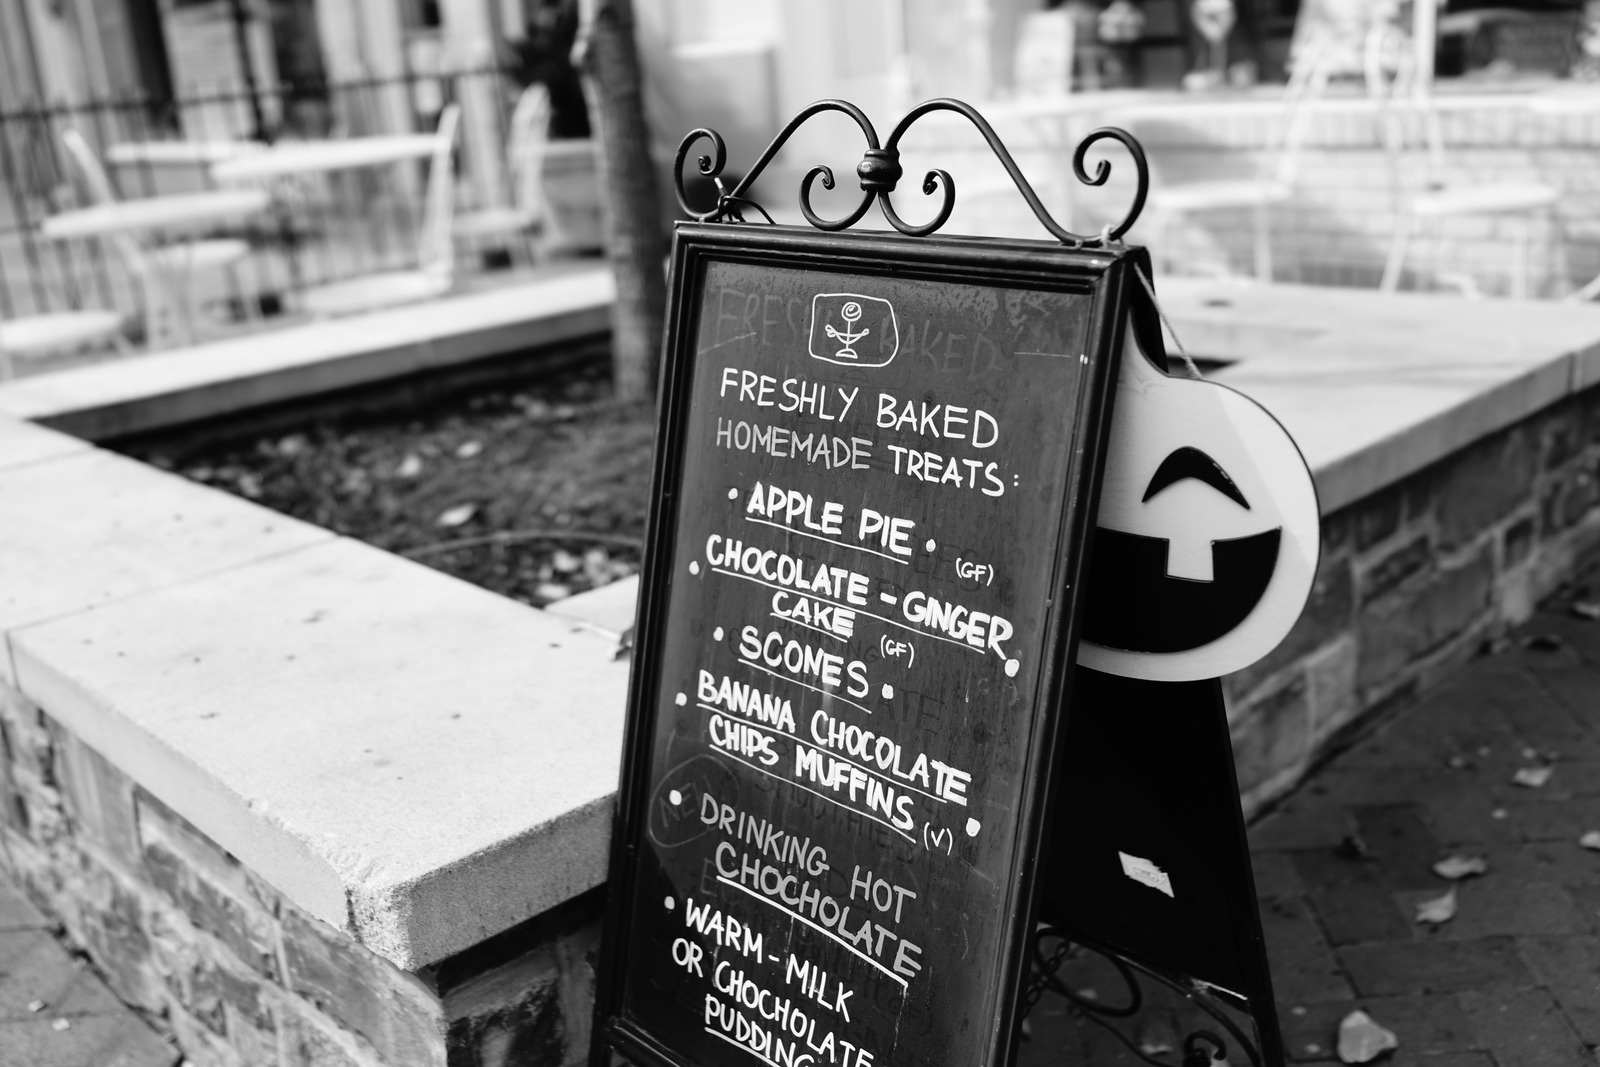 FRESHLY BAKED
HOMEMADE TREATS:
• APPLE PIE •
(GF)
• CHOCOLATE - GINGER
CAKE •
(GF)
• SCONES •
• BANANA CHOCOLATE
CHIPS MUFFINS (V) •
• DRINKING HOT
CHOCHOLATE
• WARM - MILK
OR CHOCHOLATE
PUDDING